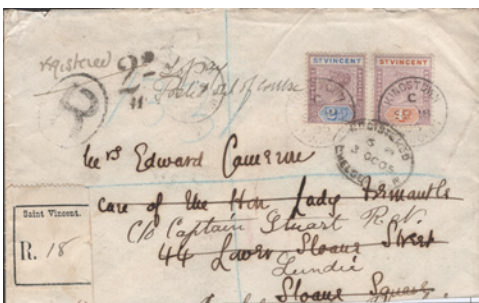 registered
R
2d
ST VINCENT ST VINCENT
KINGSTOWN KINGSTOWN
C C
REGISTERED
3 OC 05
CHELSEA
Mrs Edward Cameron
care of The Hon Lady Fremantle
c/o Captain Stuart R.N.
44 Lower Sloane Street
Sloane Square
Saint Vincent.
R. 18